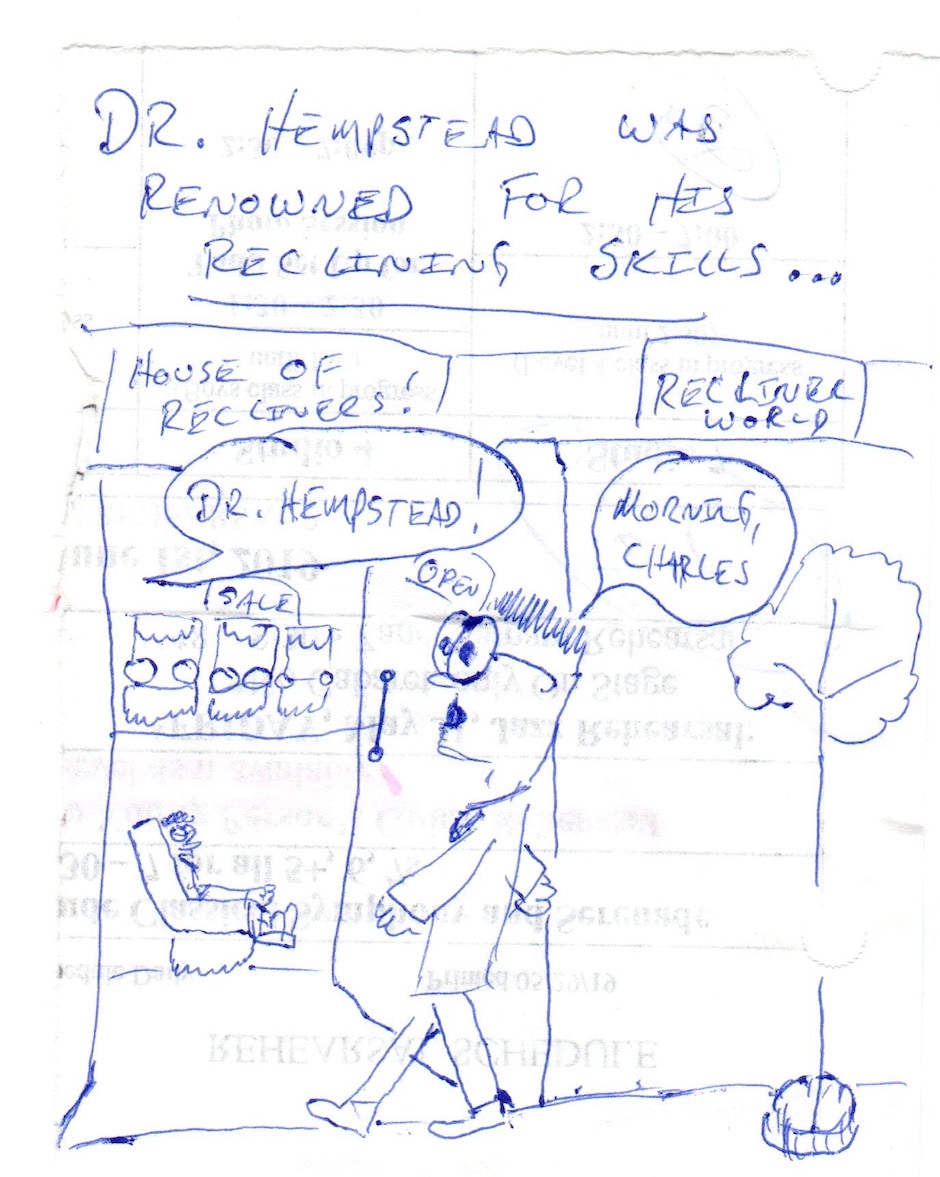 DR. HEMPSTEAD WAS
RENOWNED FOR HIS
RECLINING SKILLS...
HOUSE OF
RECLINERS!
RECLINER
WORLD
DR. HEMPSTEAD!
MORNING,
CHARLES
OPEN
SALE